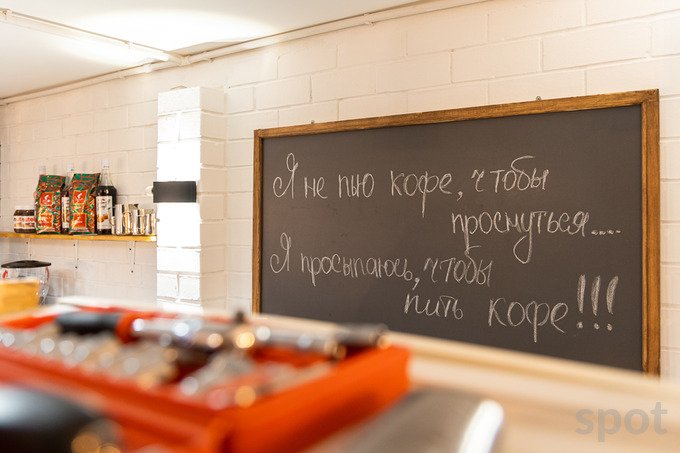 Я не пью кофе, чтобы
проснуться....
Я просыпаюсь, чтобы
пить кофе!!!
spot